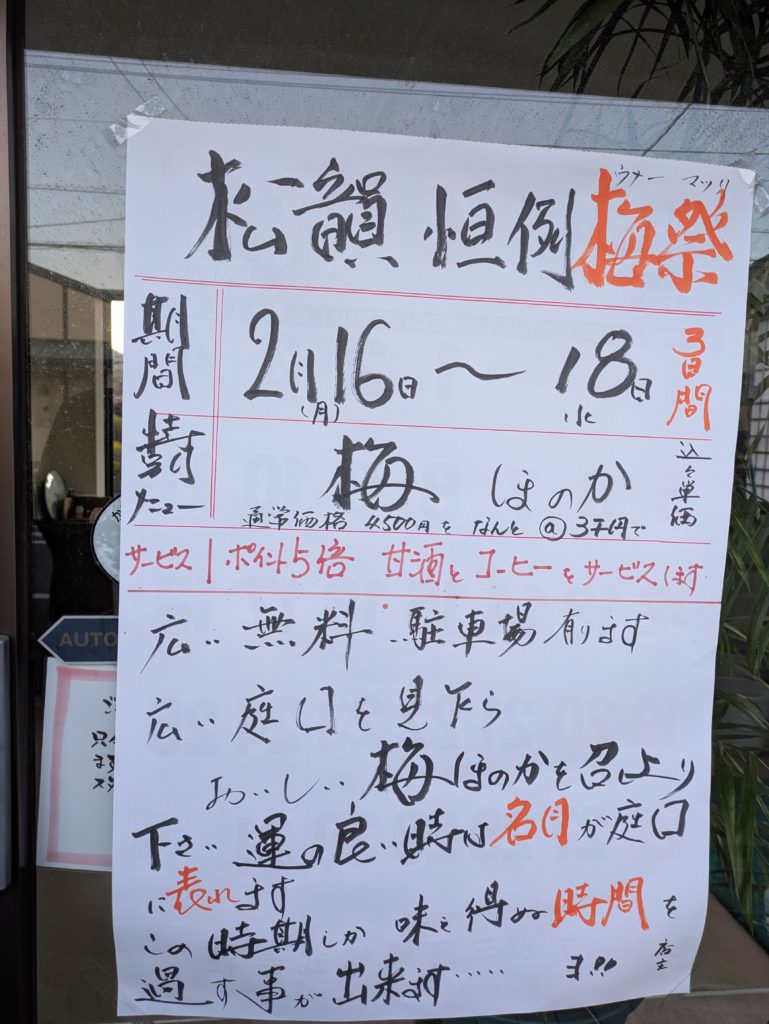 ウメー マツリ
松韻 恒例 梅祭
期間 2月16日(月)～18日水 3日間
特別メニュー 梅 ほのか 込々単価
通常価格 4500円を なんと @3千円で
サービス ポイント5倍 甘酒とコーヒーをサービスします
広い 無料 駐車場有ります
広い 庭口を見下ら
おいしい 梅ほのかを召上り
下さい 運の良い時は名月が庭口
に表れます
この時期しか 味え得ぬ時間を
過す事が出来ます…… ヨ!! 店主
AUTO